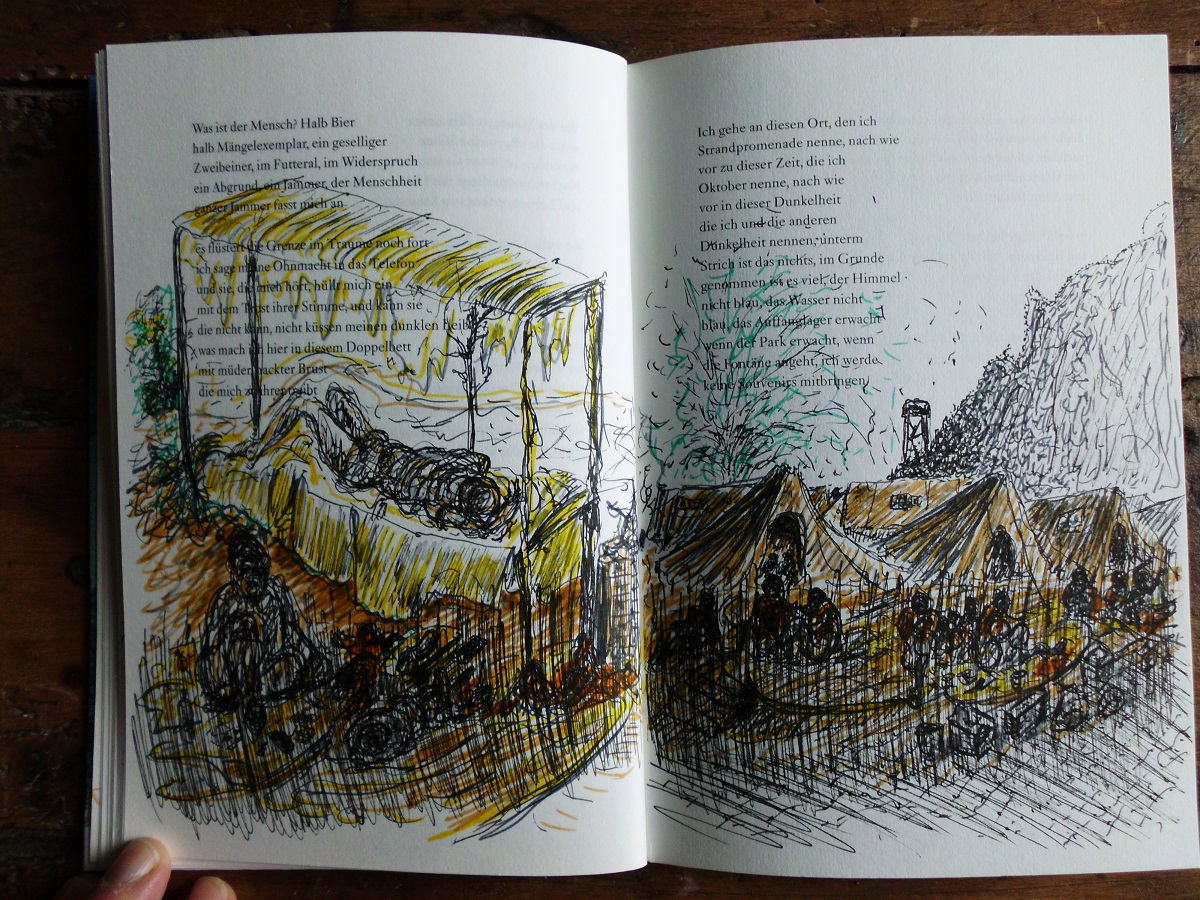 Was ist der Mensch? Halb Bier
halb Mängelexemplar, ein geselliger
Zweibeiner, im Futteral, im Widerspruch
ein Abgrund, ein Jammer, der Menschheit
ganzer Jammer fasst mich an
es flüstert die Grenze im Traume noch fort
ich sage meine Ohnmacht in das Telefon
und sie, die mich hört, hüllt mich ein
mit dem Trost ihrer Stimme, und kann sie
die nicht kann, nicht küssen meinen dunklen Leib
was mach ich hier in diesem Doppelbett
mit müder, nackter Brust
die mich zu ihrer treibt
Ich gehe an diesen Ort, den ich
Strandpromenade nenne, nach wie
vor zu dieser Zeit, die ich
Oktober nenne, nach wie
vor in dieser Dunkelheit
die ich und die anderen
Dunkelheit nennen, unterm
Strich ist das nichts, im Grunde
genommen ist es viel, der Himmel
nicht blau, das Wasser nicht
blau, das Auffanglager erwacht
wenn der Park erwacht, wenn
die Fontäne angeht, ich werde
keine Souvenirs mitbringen